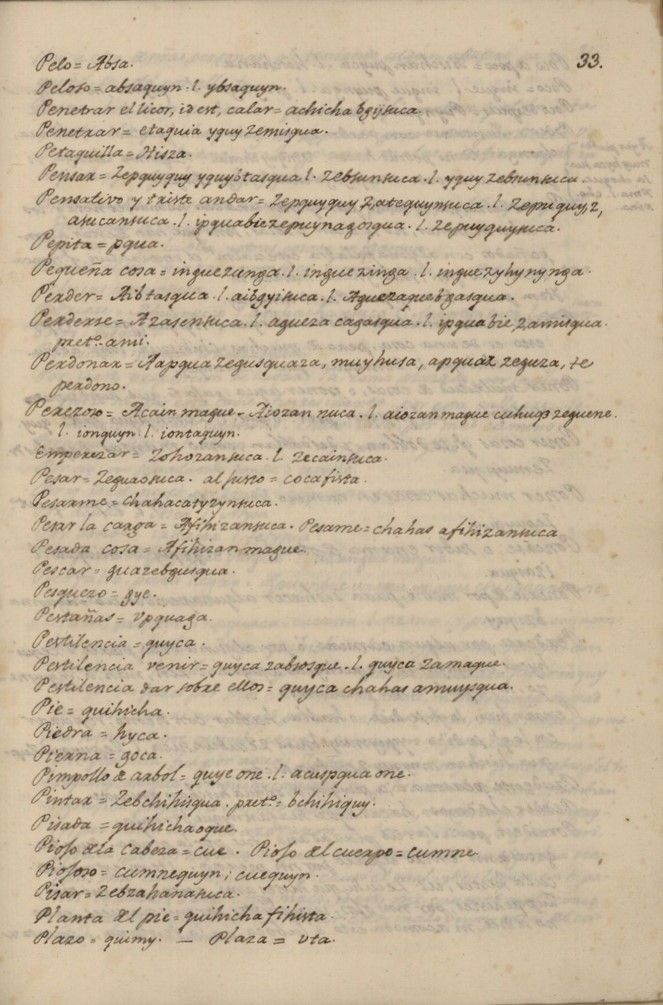 33.
Pelo = Absa.
Peloso = absaquyn. l. ybsaquyn.
Penetrar el licor, id est, calar = achicha bgÿsuca.
Penetrar = etaquia yquy zemisqua.
Petaquilla = Hisza.
Pensar = Zepquyquy yquybtasqua l. zebsunsuca. l. yquy zebsunsuca.
Pensativo y triste andar = Zepquyquy zatequynsuca. l. Zepuiquy, z,
asucansuca. l. ipquabiezepuuynagosqua. l. zepuyquysuca.
Pepita = pqua.
Pequeña cosa = inguezunga. l. inguezinga. l. inguezyhynynga.
Perder = Aibtasqua. l. aibgyisuca. l. Aguezaquebgasqua.
Perderse = Azasensuca. l. agueza cagasqua. l. ipquabie zamisqua.
pret.º ami.
Perdonar = Aapqua zegusquaza, muyhusa, apquaz zeguza, te
perdono.
Perezoso = Acain mague. Aiozan nuca. l. aiozan mague cuhup zeguene.
l. ionquyn l. iontaquyn.
Emperezar = Zohozansuca. l. zecainsuca.
Pesar = Zequaosuca. al justo = cocafista.
Pesarme = chahacatyzynsuca.
Pesar la carga = Afihizansuca. Pesame = chahas afihizansuca
Pesada cosa = Afihizan mague.
Pescar = guazebgusqua.
Pesquezo = gye.
Pestañas = upquaga.
Pestilencia = quyca.
Pestilencia venir = quyca zabsosque. l. quyca zamaque.
Pestilencia dar sobre ellos = quyca chahas amuysqua.
Pie = quihicha.
Piedra = hyca.
Pierna = goca.
Pimpollo de arbol = quye one. l. acuspqua one.
Pintar = Zebchihisqua. pret.º bchihiquy.
Pisada = quihichaoque.
Piojo de la cabeza = cue. Piojo del cuerpo = cumne
Piojoso = cumnequyn; cuequyn.
Pisar = Zebzahanasuca.
Planta del pie = quihicha fihista.
Plazo = quimy. — Plaza = uta.